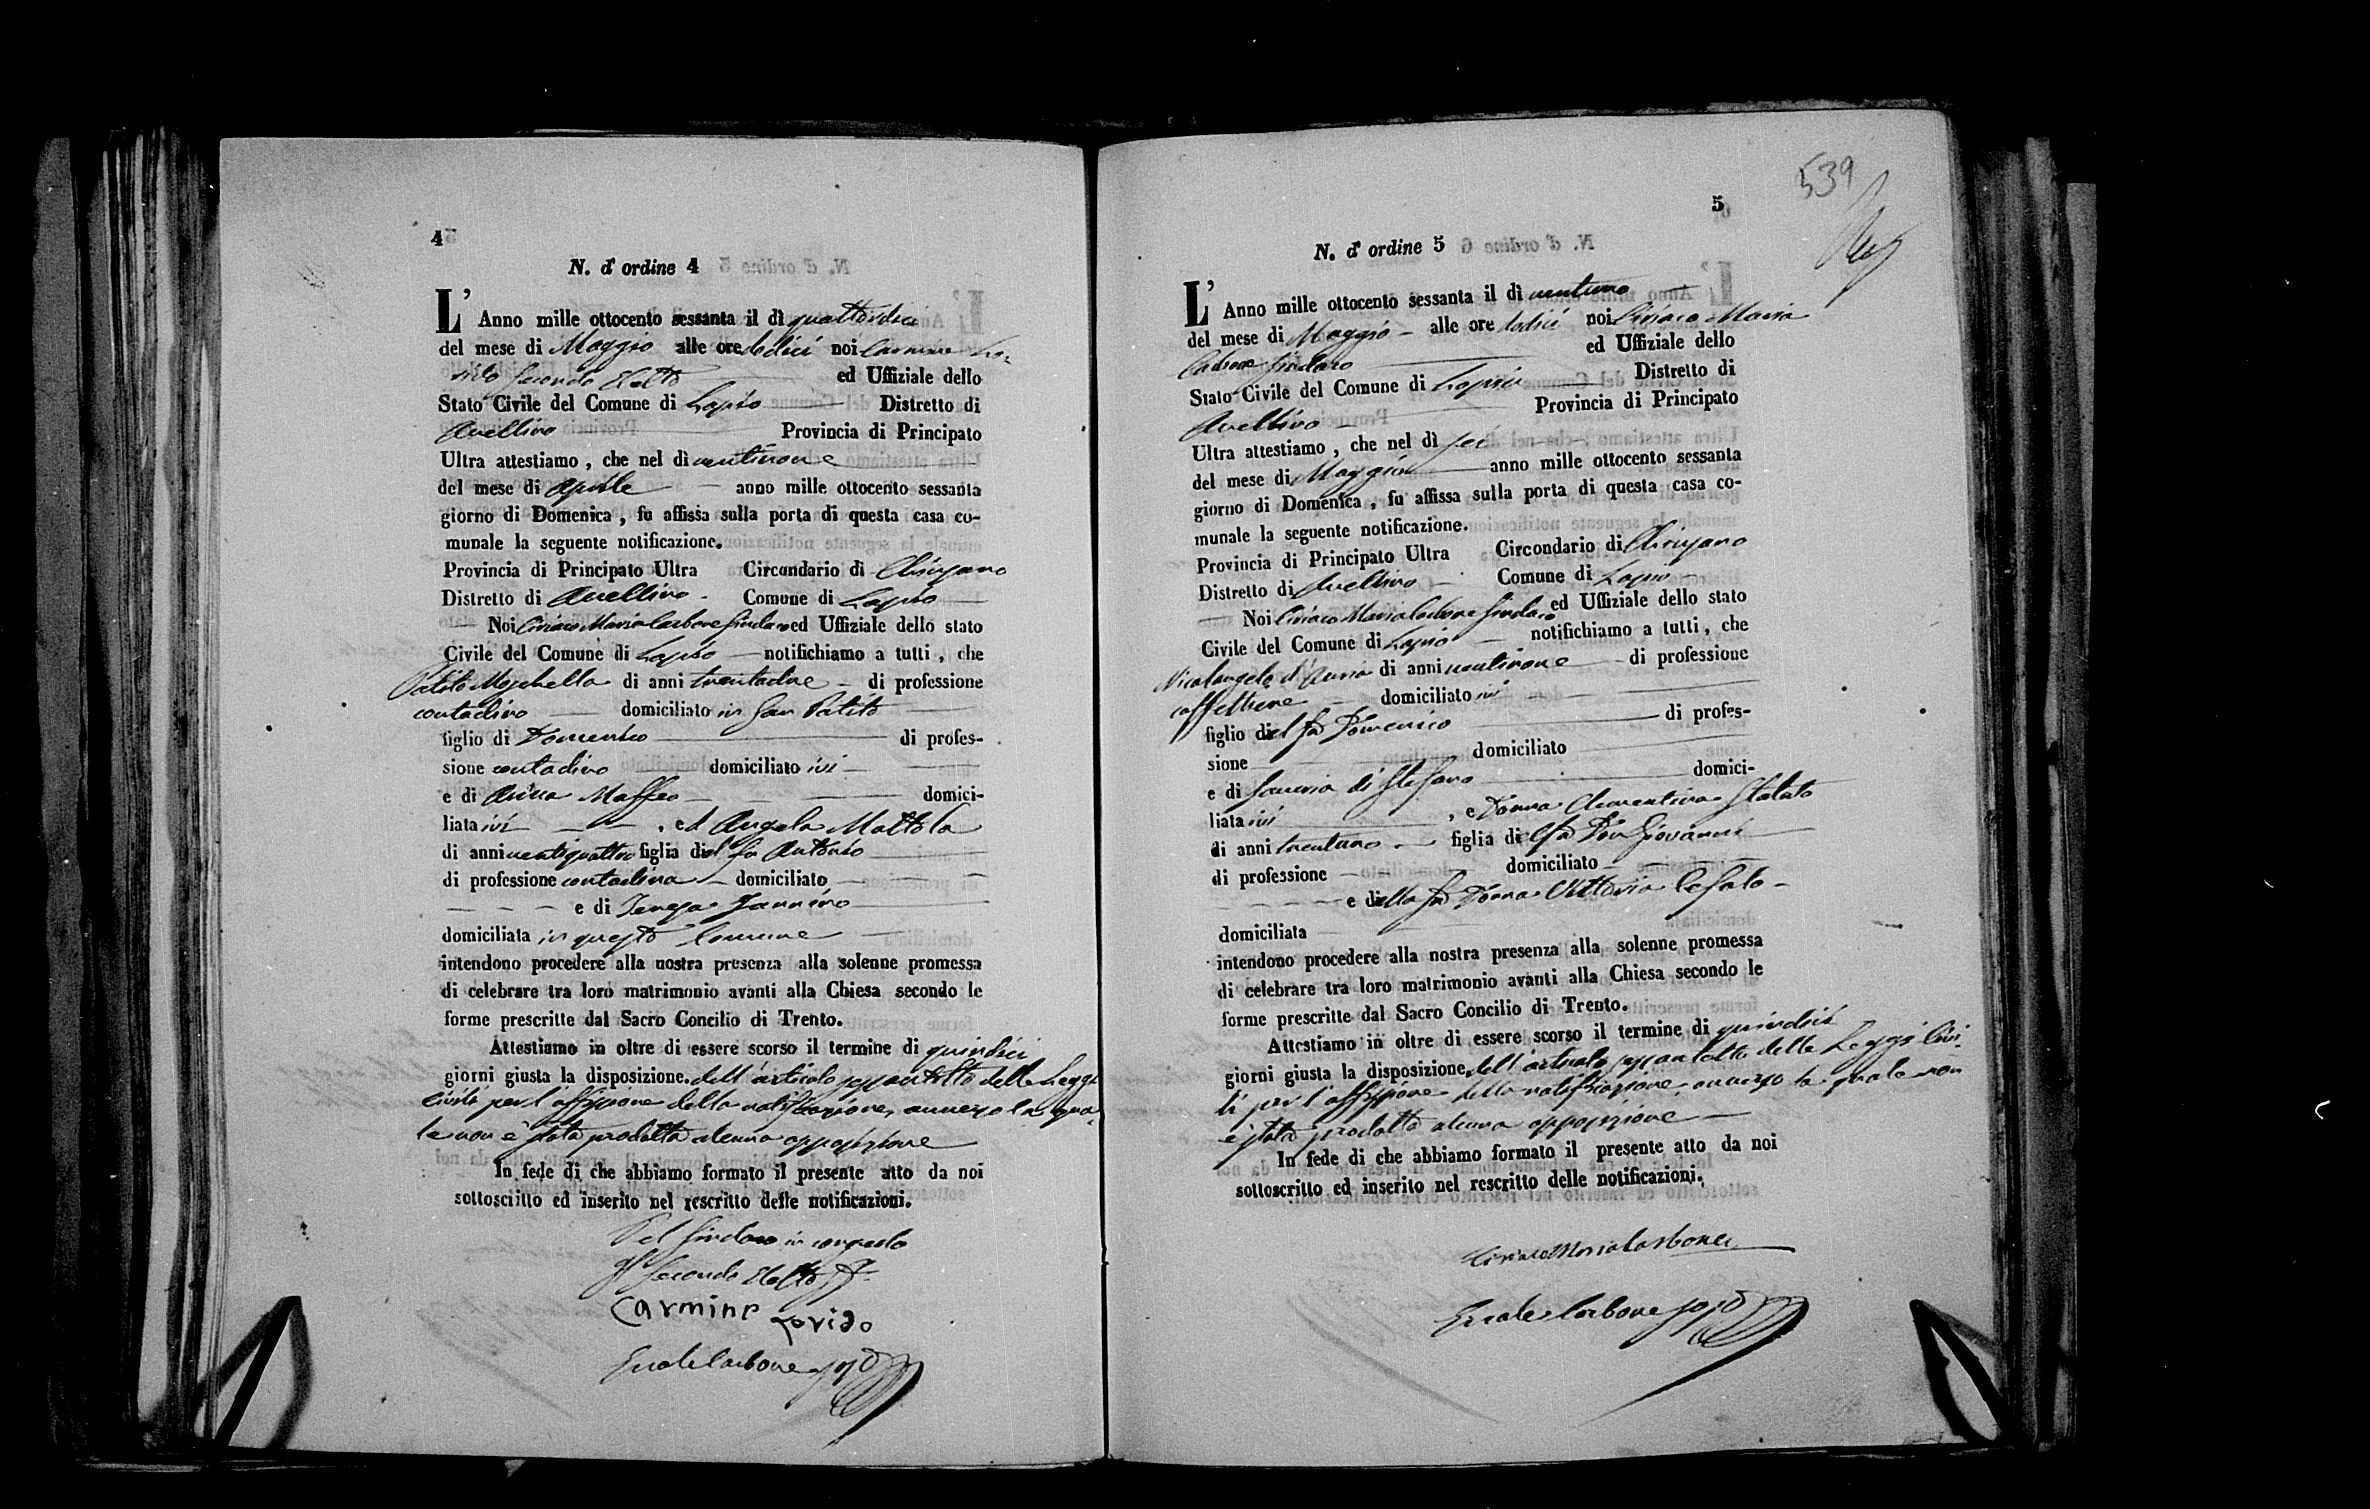 4
N. d' ordine 4
L' Anno mille ottocento sessanta il dì quattordici
del mese di Maggio alle ore dodici noi Carmine Lo-
rido Secondo Eletto ed Uffiziale dello
Stato Civile del Comune di Lapio Distretto di
Avellino Provincia di Principato
Ultra attestiamo, che nel dì ventinove
del mese di Aprile anno mille ottocento sessanta
giorno di Domenica, fu affissa sulla porta di questa casa co-
munale la seguente notificazione.
Provincia di Principato Ultra Circondario di Chiusano
Distretto di Avellino Comune di Lapio
Noi Ciriaco Maria Carbone Sindaco ed Uffiziale dello stato
Civile del Comune di Lapio notifichiamo a tutti, che
Potito Moschella di anni trentadue di professione
contadino domiciliato in San Potito
figlio di Domenico di profes-
sione contadino domiciliato ivi
e di Anna Maffeo domici-
liata ivi, ed Angela Mottola
di anni ventiquattro figlia del fu Antonio
di professione contadina domiciliato
e di Teresa Iannino
domiciliata in questo Comune
intendono procedere alla nostra presenza alla solenne promessa
di celebrare tra loro matrimonio avanti alla Chiesa secondo le
forme prescritte dal Sacro Concilio di Trento.
Attestiamo in oltre di essere scorso il termine di quindici
giorni giusta la disposizione dell'articolo sessantotto delle Leggi
Civili per l'affissione della notificazione, avverso la qua-
le non è stata prodotta alcuna opposizione
In fede di che abbiamo formato il presente atto da noi
sottoscritto ed inserito nel rescritto delle notificazioni.
Pel Sindaco in congedo
Il Secondo Eletto ff.
Carmine Lorido
Ercole Carbone
539
5
N. d' ordine 5
L' Anno mille ottocento sessanta il dì ventuno
del mese di Maggio alle ore dodici noi Ciriaco Maria
Carbone Sindaco ed Uffiziale dello
Stato Civile del Comune di Lapio Distretto di
Avellino Provincia di Principato
Ultra attestiamo, che nel dì sei
del mese di Maggio anno mille ottocento sessanta
giorno di Domenica, fu affissa sulla porta di questa casa co-
munale la seguente notificazione.
Provincia di Principato Ultra Circondario di Chiusano
Distretto di Avellino Comune di Lapio
Noi Ciriaco Maria Carbone Sindaco ed Uffiziale dello stato
Civile del Comune di Lapio notifichiamo a tutti, che
Nicolangelo d'Auria di anni ventinove di professione
caffettiere domiciliato ivi
figlio del fu Domenico di profes-
sione domiciliato
e di Saveria di Stefano domici-
liata ivi, e Donna Clementina
di anni trentuno figlia del fu Don Giovanni
di professione domiciliato
e della fu Donna Vittoria
domiciliata
intendono procedere alla nostra presenza alla solenne promessa
di celebrare tra loro matrimonio avanti alla Chiesa secondo le
forme prescritte dal Sacro Concilio di Trento.
Attestiamo in oltre di essere scorso il termine di quindici
giorni giusta la disposizione dell'articolo sessantotto delle Leggi Civi-
li per l'affissione della notificazione, avverso la quale non
è stata prodotta alcuna opposizione
In fede di che abbiamo formato il presente atto da noi
sottoscritto ed inserito nel rescritto delle notificazioni.
Ciriaco Maria Carbone
Ercole Carbone